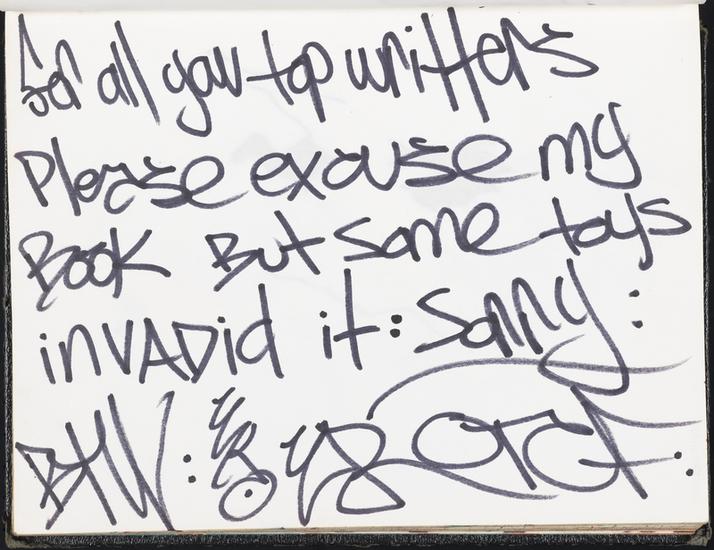 For all you top writters
Please excuse my
Book But some toys
invADid it: Sorry:
BTW: